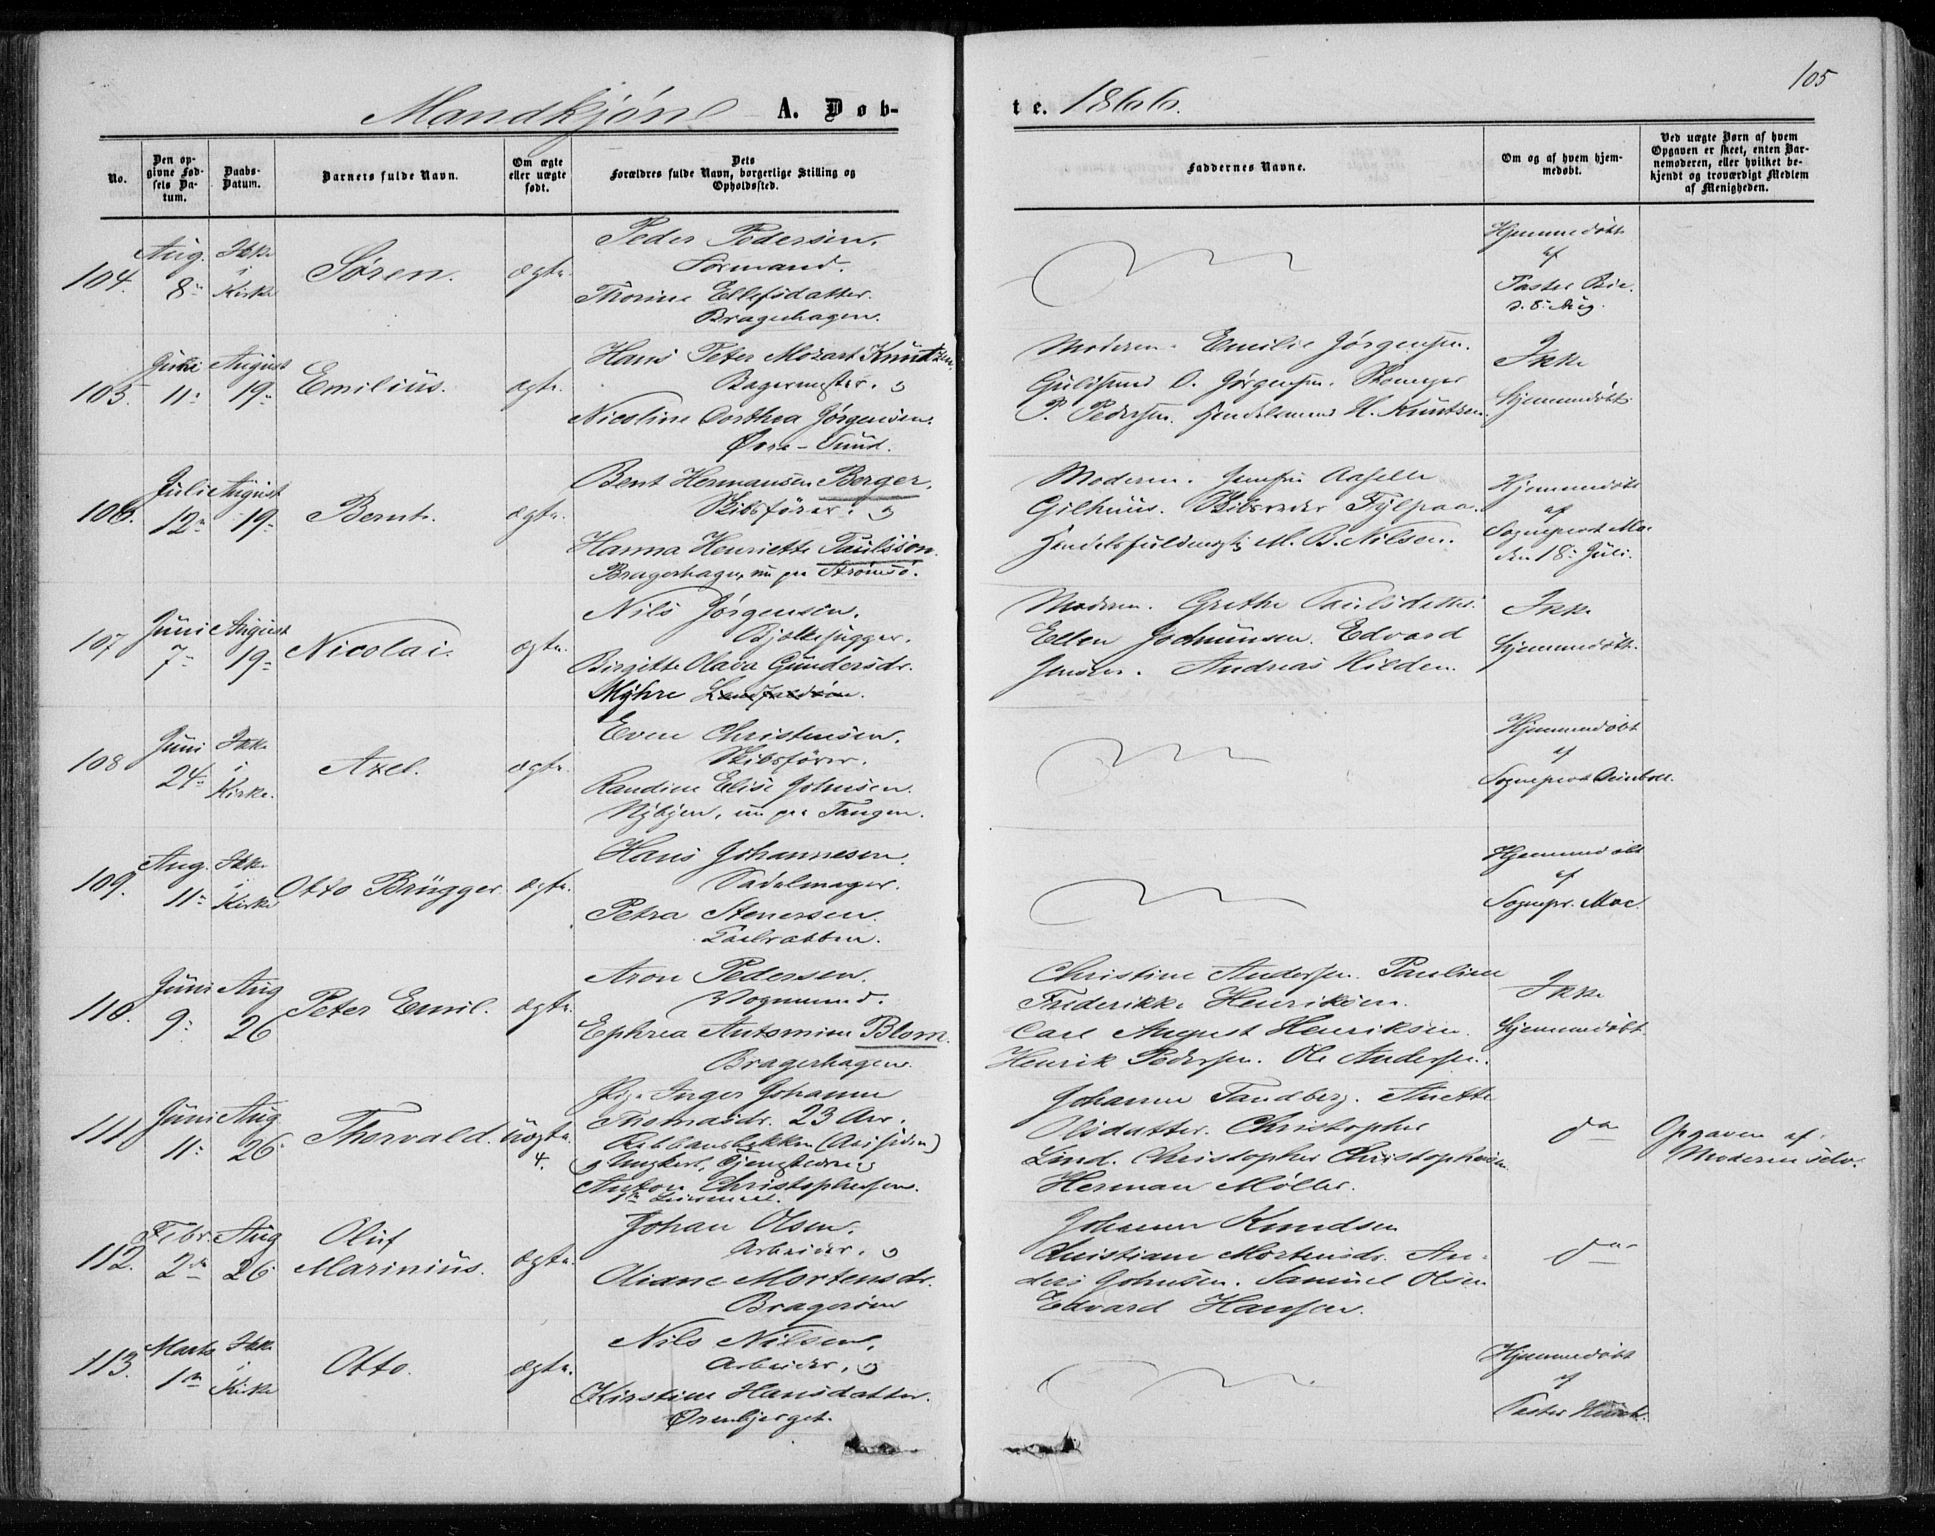 105
Mandkjøn A. Døb-
te. 1866.
No.
Den op-
givne Fød-
sels Da-
tum.
Daabs-
Datum.
Barnets fulde Navn.
Om ægte
eller uægte
født.
Dets
Forældres fulde Navn, borgerlige Stilling og
Opholdssted.
Faddernes Navne.
Om og af hvem hjem-
medøbt.
Ved uægte Børn af hvem
Opgaven er skeet, enten Bar-
nemoderen, eller hvilket be-
kjendt og troværdigt Medlem
af Menigheden.
104.
Aug.
8
Ikke
i
Kirke
Søren.
ægte.
Peder Pedersen.
Formand.
Thorine Ellefsdatter.
Bragerhagen.
Hjemmedøbt
af
Pastor Bie.
d. 8. Aug.
105.
Juni
11
August
19
Emilius.
ægte.
Hans Peter Mozart Knutzen.
Bagermester. o
Nicoline Dorthea Jørgensen.
Øvre-Sund.
Moderen. Emilie Jørgensen.
Guldsmed O. Jørgensen.
P. Pedersen. Handelsmand H. Knutzen.
Ikke
Hjemmedøbt.
106.
Juli
12
August
19
Bernt.
ægte.
Bent Hermansen Berger.
Skibsfører. o
Hanna Henriette Paulsson.
Bragerhagen, nu paa Strømsø.
Moderen. Jomfru
Gilhuus. Skibsreder Fylpaa.
Handelsfuldmægtig M. B. Nilsen.
Hjemmedøbt
af
Sogneprest Moe
den 18 Juli.
107
Juni
7
August
19
Nicolai.
ægte.
Nils Jørgensen.
Bjelkehugger.
Birgitte Olava Gundersdr.
Myhre
Moderen. Grethe Paulsdatter.
Ellen Jochumsen. Edvard
Jensen. Andreas Hilden.
Ikke
Hjemmedøbt.
108
Juni
24
Ikke
i
Kirke.
Axel.
ægte.
Even Christensen.
Skibsfører.
Randine Elise Johnsen.
Nybyen, nu paa Tangen.
Hjemmedøbt
af
Sogneprest
109.
Aug.
11
Ikke
i
Kirke
Otto Brügger.
ægte.
Hans Johannesen.
Sadelmager.
Petra Stenersen.
Hjemmedøbt
af
Sognepr. Moe.
110.
Juni
9
Aug
26
Peter Emil.
ægte.
Aron Pedersen.
Vognmand.
Ephrea Antomine Blom.
Bragerhagen.
Christine Andersen. Pauline
Frederikke Henriksen.
Carl August Henriksen.
Henrik Pedersen. Ole Andersen.
Ikke
Hjemmedøbt
111
Juni
11
Aug
26
Thorvald.
uægte.
4.
Pige Inger Johanne
Thomasdr. 23 Aar.
o Ungkarl, o
Anton Christophersen.
Johanne Tandberg. Anette
Olsdatter. Christopher
Lind. Christopher Christophersen.
Herman Møller.
do
Opgaven af
Moderen selv.
112.
Febr.
2
Aug
26
Oluf
Marinius.
ægte.
Johan Olsen.
Arbeider. o
Oliane Mortensdr.
Bragerøen
Johanne Knudsen
Christiane Mortensdr. An-
ders Johnsen. Samuel Olsen
Edvard Hansen.
do
113.
Marts
1
Ikke
i
Kirke
Otto.
ægte.
Nils Nilsen.
Arbeider. o
Kirstine Hansdatter.
Ørenbjerget.
Hjemmedøbt
af
Pastor